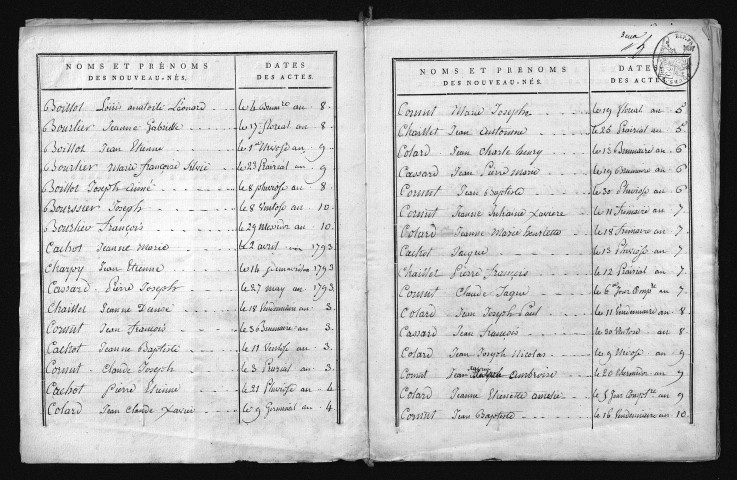 NOMS ET PRÉNOMS
DES NOUVEAU-NÉS.
DATES
DES ACTES.
Boillot Louis anatoile Léonard le 4 brum.re an 8.
Bourlier Jeanne Gabrielle le 17 floréal an 8.
Boillot Jean Etienne le 1er Nivose an 9
Bourlier Marie françoise Silvie le 23 Prairial an 9
Boillot Joseph aimé le 8 pluviose an 8
Boursier Joseph le 8 Ventose an 10.
Bourlier François le 29 Messidor an 10.
Cachot Jeanne Marie le 2 avril 1793.
Charpy Jean Etienne le 14 1793
Cassard Pierre Joseph le 27 may an 1793
Chaillet Jeanne Denise le 18 Vendemiaire an 3.
Cornut Jean françois le 8 Brumaire an 3.
Cachot Jeanne Baptiste le 11 Ventose an 3.
Cornut Claude Joseph le 3 Prairial an 3.
Cachot Pierre Etienne le 21 Pluviose an 4
Colard Jean Claude Xavier le 9 Germinal an 4.
NOMS ET PRÉNOMS
DES NOUVEAU-NÉS.
DATES
DES ACTES
Cornut Marie Joseph le 19 floreal an 5
Chaillet Jean Antoinne le 26 Prairial an 5
Colard Jean Charle henry le 13 Brumaire an 6
Cassard Jean Pierre Marie le 29 Brumaire an 6
Cornut Jean Baptiste le 30 Pluviose an 6
Cornut Jeanne Juliaine Xaviere le 11 frimaire an 7.
Colard Jeanne Marie henriette le 18 frimaire an 7.
Cachot Jaque le 13 Pluviose an 7.
Chaillet Pierre françois le 12 Prairial an 7.
Cornut Claude Jaque le 6 me Jour Comp.re an 7.
Colard Jean Joseph Paul le 11 Vendemiaire an 8
Cassard Jean françois le 30 Ventose an 8.
Colard Jean Joseph Nicolas le 9 Nivose an 9
Cornut Jean Ambroise le 20 Thermidor an 9
Colard Jeanne Etienette amelie le 5 Jour Comp.re an 9
Cornut Jean Baptiste le 16 Vendemiaire an 10.